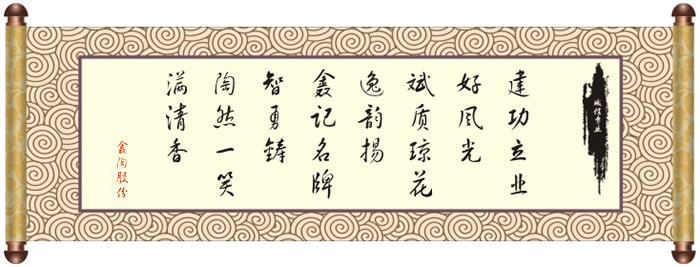 诚信
建功立业
好风光
斌质琼花
逸韵扬
鑫记名牌
智勇铸
陶然一笑
满清香
鑫陶股份